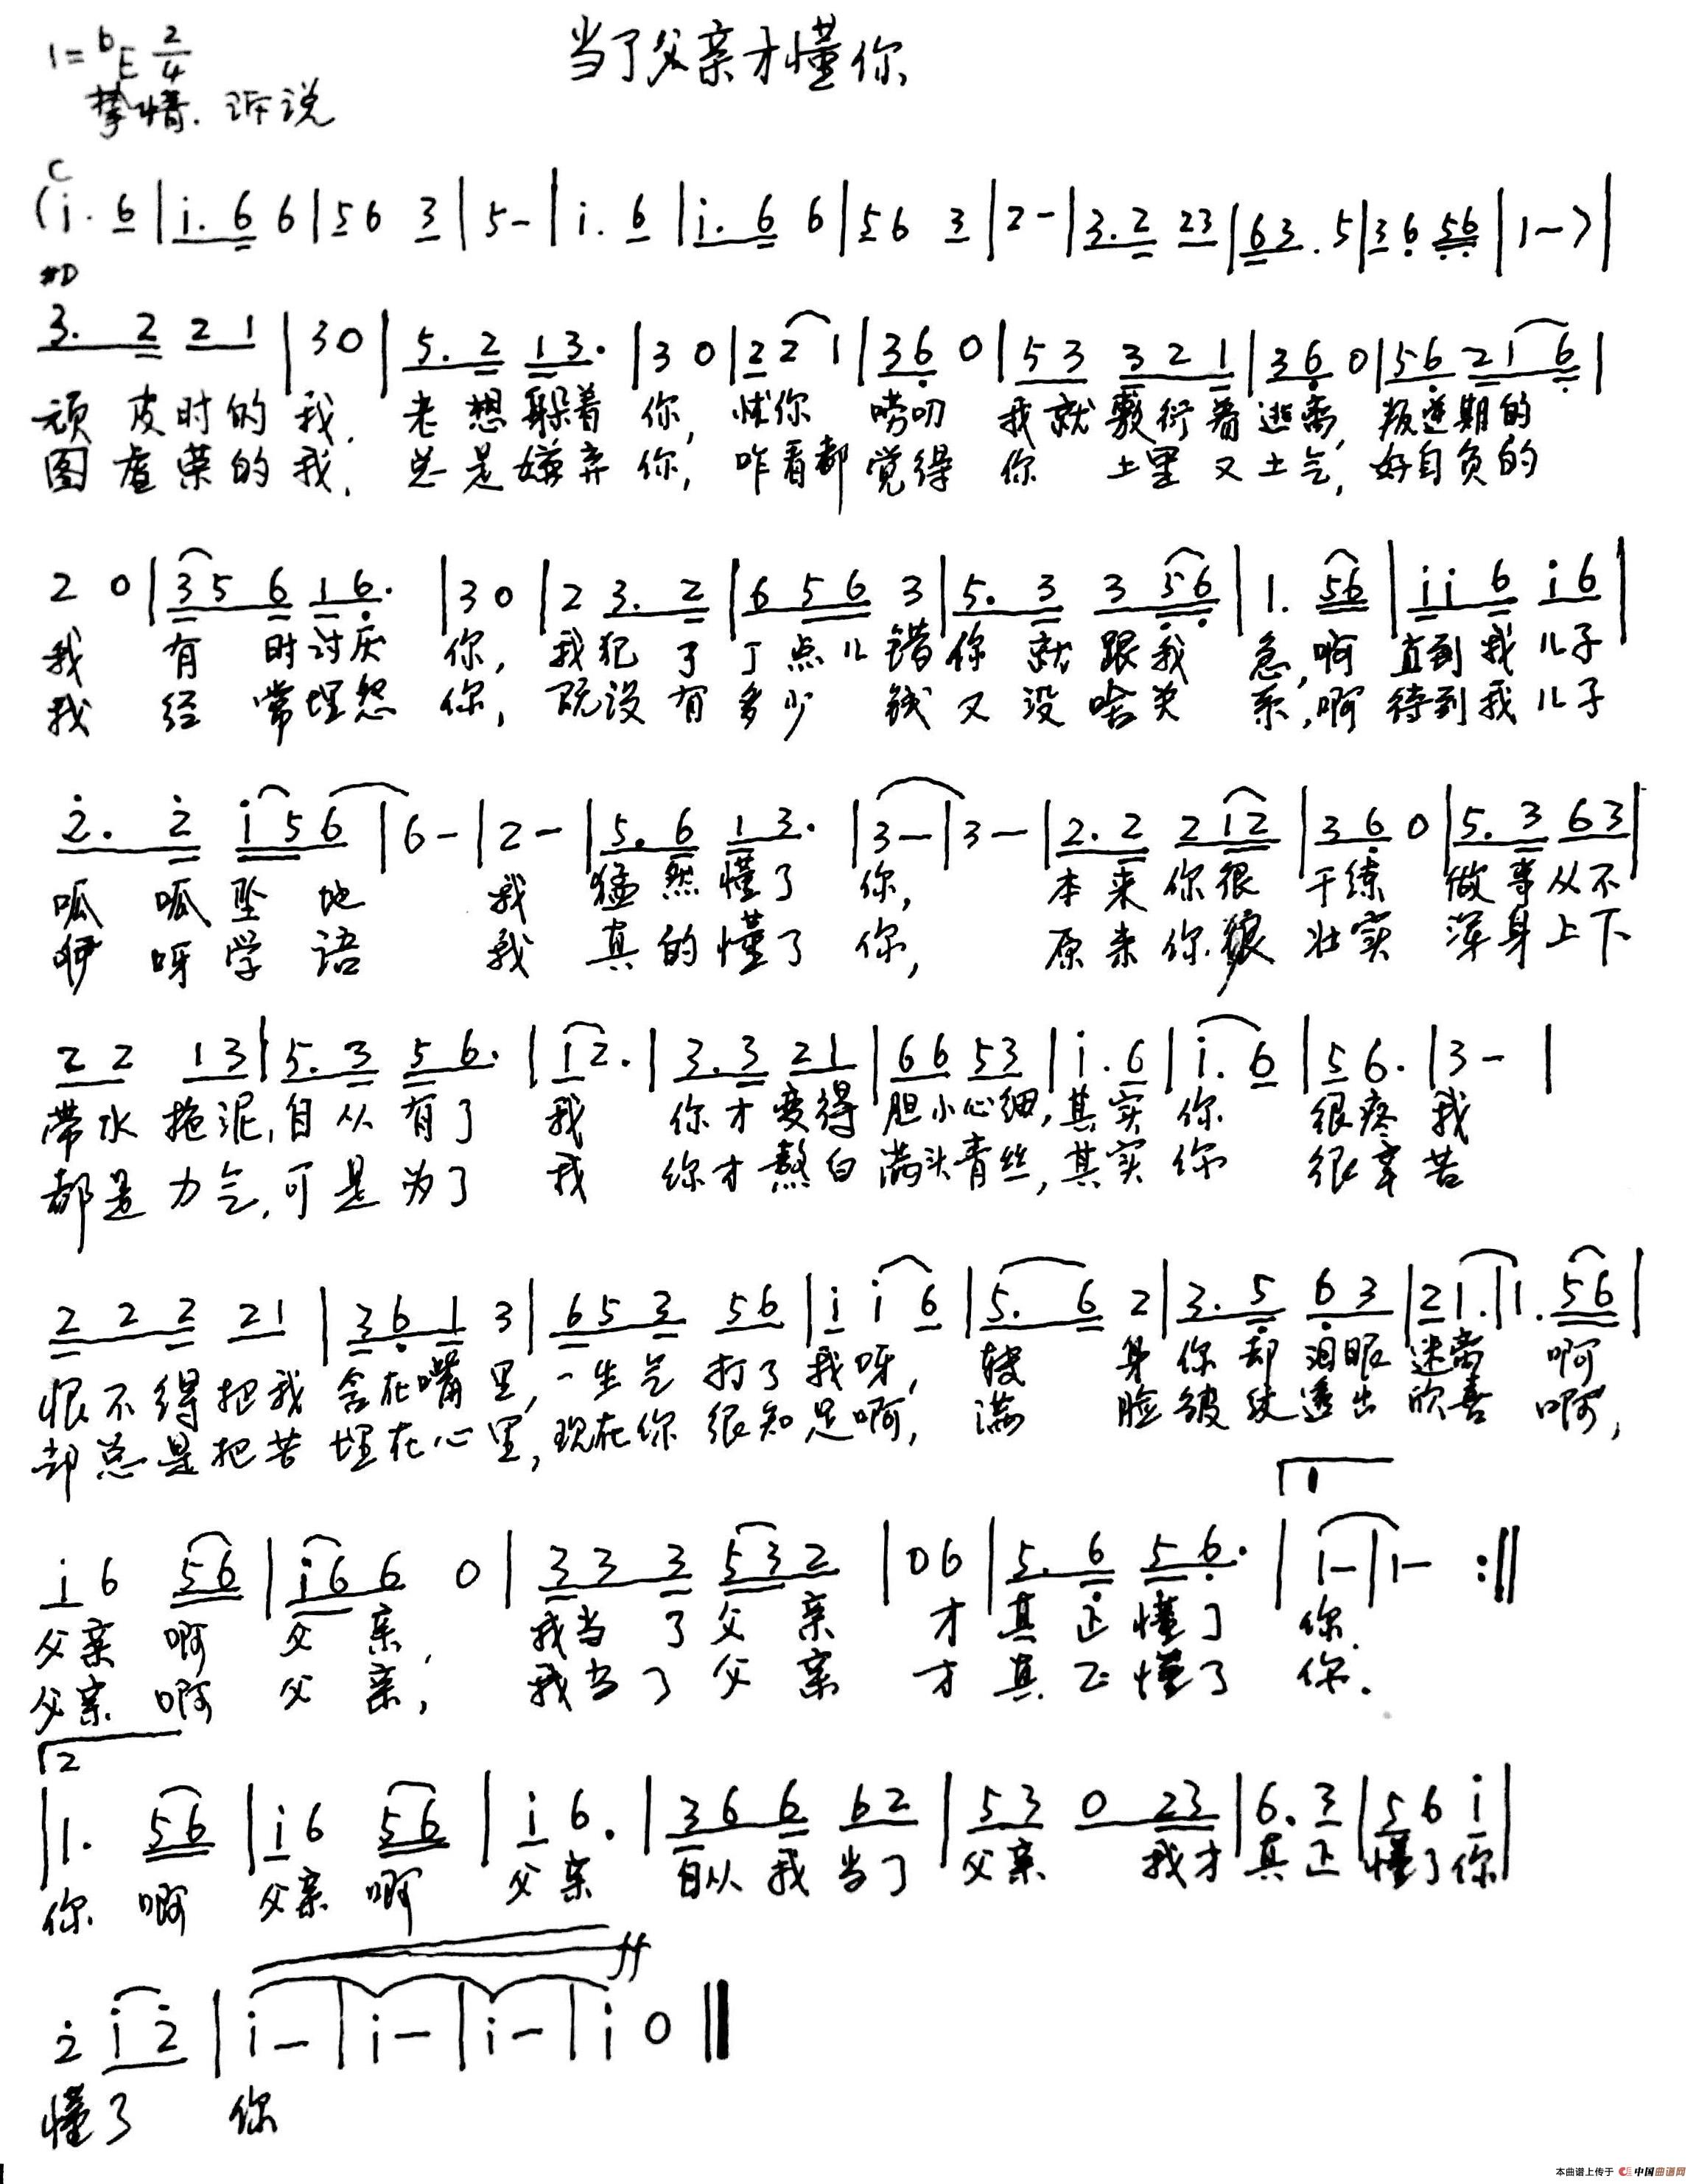 当了父亲才懂你
1=bE 2/4
挚情.诉说
C
(i. 6|i. 6 6|56 3|5-|i. 6|i. 6 6|56 3|2-|3.2 23|63. 5|36 56|1-)|
#D
3. 2 2 1|30|5. 2 13.|3 0|22 1|36 0|53 3 2 1|36 0|56 21 6|
顽皮时的我,老想躲着你,忧你唠叨我就敷衍着逃离,叛逆期的
图虚荣的我,总是嫌弃你,咋看都觉得你土里又土气,好自负的
2 0|35 6 16.|30|2 3. 2|6 56 3|5. 3 3 56|1. 56|ii 6 i6|
我有时讨厌你,我犯了丁点儿错你就跟我急,啊直到我儿子
我经常埋怨你,既没有多少钱又没啥关系,啊待到我儿子
2. 2 i56|6-|2-|5. 6 13.|3-|3-|2.2 2i2|36 0|5. 3 63|
呱呱坠地我猛然懂了你,本来你很干练做事从不
咿呀学语我真的懂了你,原来你很壮实浑身上下
22 13|5.3 56.|i2.|3.3 21|66 53|i.6|i. 6|56.|3-|
带水拖泥,自从有了我你才变得胆小心细,其实你很疼我
都是力气,可是为了我你才熬白满头青丝,其实你很辛苦
2 2 2 21|36 1 3|65 3 56|i i 6|5. 6 2|3. 5 63|21.|1. 56|
恨不得把我含在嘴里,一生气打了我呀,转身你却泪眼迷蒙啊
却总是把苦埋在心里,现在你很知足啊,满脸皱纹透出欣喜啊,
1
i6 56|i6 6 0|33 3 532|06|5. 6 56.|1-|1- :||
父亲啊父亲,我当了父亲才真正懂了你.
父亲啊父亲,我当了父亲才真正懂了你.
2
|1. 56|i6 56|i6.|36 6 62|53 0 23|6. 3|56 i|
你啊父亲啊父亲自从我当了父亲我才真正懂了你
ff
2 i2|i-|i-|i-|i 0||
懂了你
本曲谱上传于 中国曲谱网